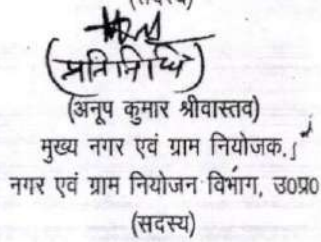 (प्रतिनिधि)
(अनूप कुमार श्रीवास्तव)
मुख्य नगर एवं ग्राम नियोजक,
नगर एवं ग्राम नियोजन विभाग, उ0प्र0
(सदस्य)